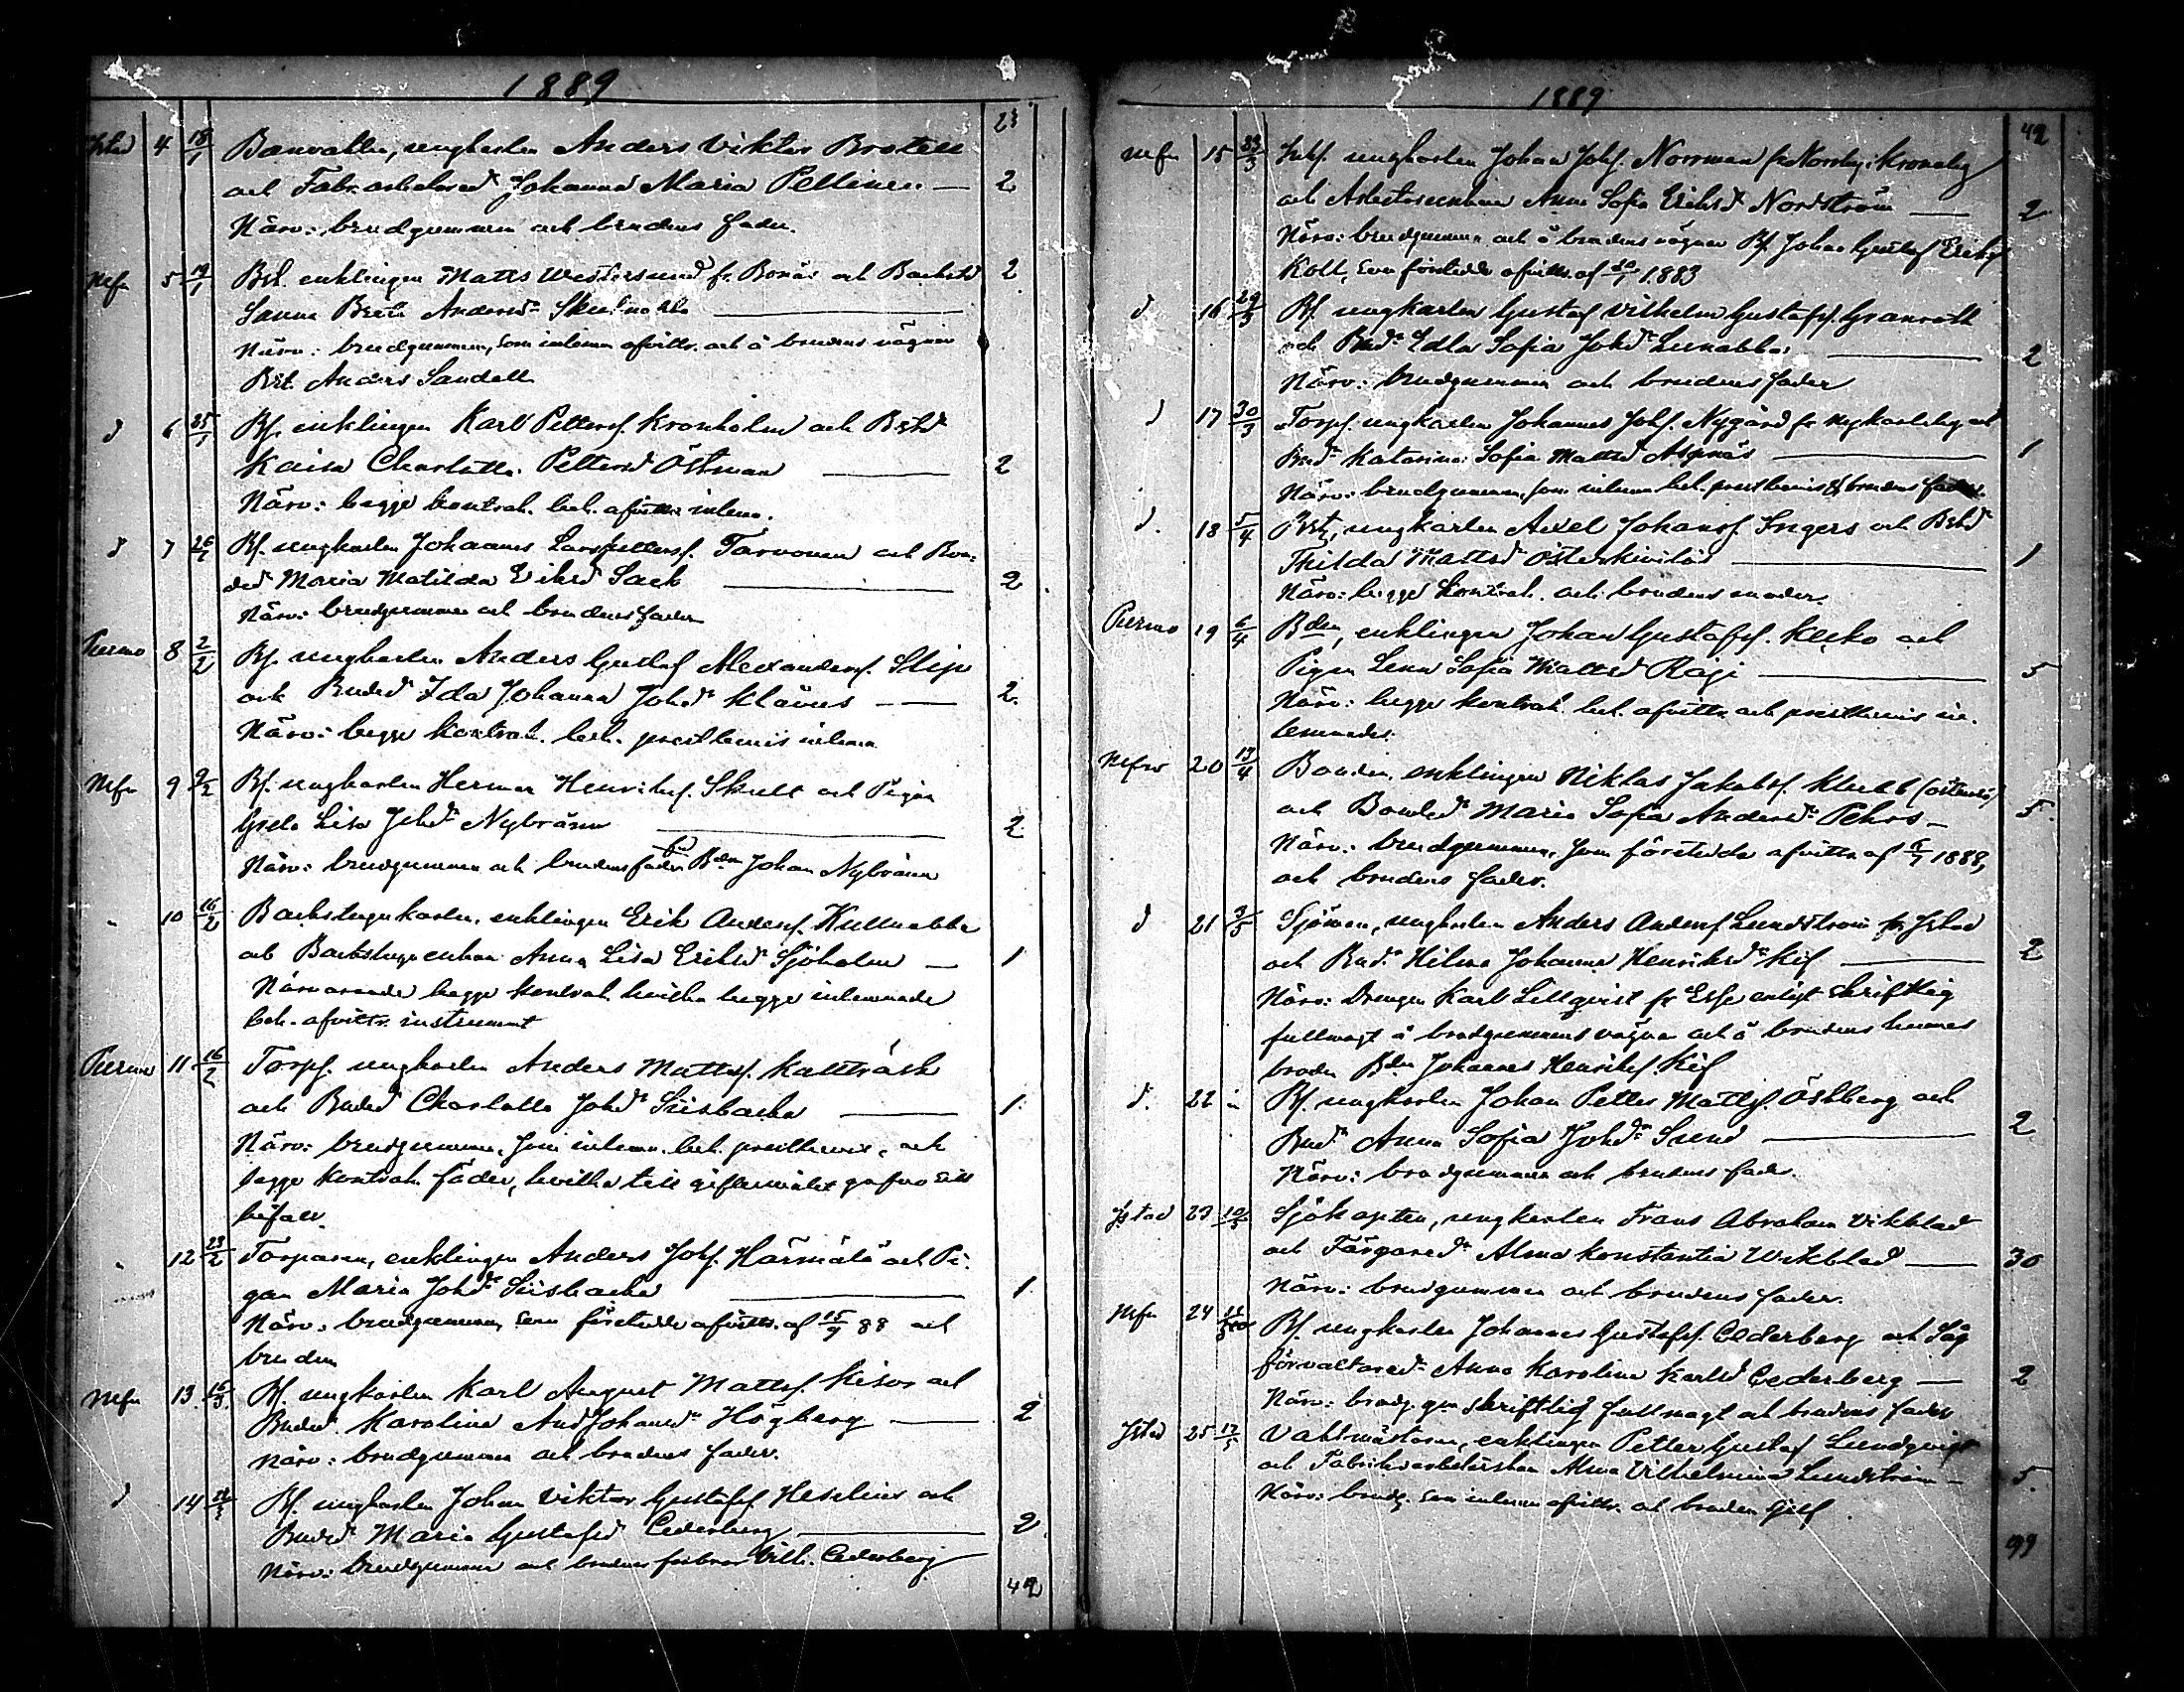 1889
23
Jstad 4 18/1 Banvakten, ungkarlen Anders Viktor Brotell
och Fabr.arbetared. Johanna Maria Pellinen — 2
Närv: brudgummen och brudens fader.
Nfn 5 19/1 Bst. enklingen Matts Westersund fr. Bonäs och Backstd 2
Sanna Brita Andersdr
Närv: brudgummen, som inlemn afvittr. och å brudens vägnar
Bst. Anders Sandell
d 6 25/1 Bf. enklingen Karl Petterss. Kronholm och Bstd
Kaisa Charlotta Pettersd Östman — 2
Närv: begge kontrah. beh. afvittr. inlemn.
d 7 26/1 Bf. ungkarlen Johannes Larspetterss. Tarvonen och Bon-
ded Maria Matilda Eriksd Sack — 2
Närv: brudgummen och brudens fader
Purmo 8 2/2 Bf. ungkarlen Anders Gustaf Alexanderss. Slip
och Boded Ida Johanna Johd. Klävus — 2
Närv: begge kontrah. beh. prestbevis inlemn
Nfn 9 9/2 Bf. ungkarlen Herman Henrikss. Skult och Pigan
Greta Lisa Johd. Nybränn — 2
Närv: brudgummen och brudens fader Bdn Johan Nybränn
10 16/2 Backstugukarlen, enklingen Erik Anderss. Kullnabba
och Backstuguenkan Anna Lisa Eriksd. Sjöholm — 1
Närvarande begge kontrah. hvilka begge inlemnade
beh. afvittr. instrument
Purmo 11 16/2 Torpf. ungkarlen Anders Mattss. Kaltträsk
och Boded Charlotta Johd. Sisbacka — 1
Närv: brudgummen, som inlemn. beh. prestbevis, och
begge kontrah. fäder, hvilka till giftermålet gåfvo sitt
bifall.
12 23/2 Torparen, enklingen Anders Johss. Härmälä och Pi-
gan Maria Johd. Sisbacka — 1
Närv: brudgummen, som företedde afvittr. af 15/9 88 och
bruden
Nfn 13 16/3 Bf. ungkarlen Karl August Mattss. Kisor och
Boded. Karolina And Johansd. Högberg — 2
Närv: brudgummen och brudens fader.
d 14 Bf. ungkarlen Johan Viktor Gustafss Heselius och
Boded Maria Gustafsd Cederberg — 2
Närv: brudgummen och brudens farbror Vilh. Cederberg
42
1889
42
Nfn 15 23/3 Inhs. ungkarlen Johan Johss. Norrman fr Norrby i Kronoby
och Arbetarenkan Anna Sofia Eriksd Nordström — 2
Närv: brudgummen och å brudens vägnar Bf. Johan Gustaf Erikss
Koll, som företedde afvittr. af 1883
d 16 29/3 Bf. ungkarlen Gustaf Vilhelm Gustafss. Granroth
och Bod. Edla Sofia Johd. Lunabba — 2
Närv: brudgummen och brudens fader
d 17 30/3 Torpf. ungkarlen Johannes Johss. Nygård fr Nykarleby och
Bod. Katarina Sofia Mattsd Aspnäs — 1
Närv: brudgummen, som inlemn beh. prestbevis & brudens fader.
d. 18 5/4 Bst, ungkarlen Axel Johanss. Ingers och Bstd
Thilda Mattsd Österkivilös — 1
Närv: begge kontrah. och brudens moder.
Purmo 19 6/4 Bden, enklingen Johan Gustafss. Kecko och
Pigan Lena Sofia Mattsd Raji — 5
Närv: begge kontrah. beh. afvittr. och prestbevis in-
lemnades.
Nfn 20 13/4 Bonden, enklingen Niklas Jakobss. Klubb
och Bonded. Maria Sofia Andersdr. Pehrs — 5.
Närv: brudgummen, som företedde afvittr. af 1888,
och brudens fader.
d 21 3/5 Sjöman, ungkarlen Anders Anderss Lundström fr Jstad
och Bod. Hilma Johanna Henriksdr Kif — 2
Närv: Drengen Karl Lillqvist fr Esse enligt skriftlig
fullmagt å brudgummens vägnar och å brudens hennes
broder Bden Johannes Henrikss. Kif
d. 22 Bf. ungkarlen Johan Petter Mattss. Östberg och
Bod. Anna Sofia Johdr Sund — 2
Närv: brudgummen och brudens fader.
Jstad 23 10/5 Sjökapten, ungkarlen Frans Abraham Vikblad
och Färgared. Alma Konstantia Wikblad — 30
Närv: brudgummen och brudens fader.
Nfn 24 11/5 Bf. ungkarlen Johannes Gustafss. Cederberg och Såg
förvaltared. Anna Karolina Karlsd Cederberg — 2
Närv: brudg. gm skriftlig fullmagt och brudens fader
Jstad 25 17/5 Vaktmästaren, enklingen Petter Gustaf Lundqvist
och Fabriksarbeterskan Alma Vilhelmina Lundström — 5.
Närv: brudg. som inlemn afvittr. och bruden sjelf
99